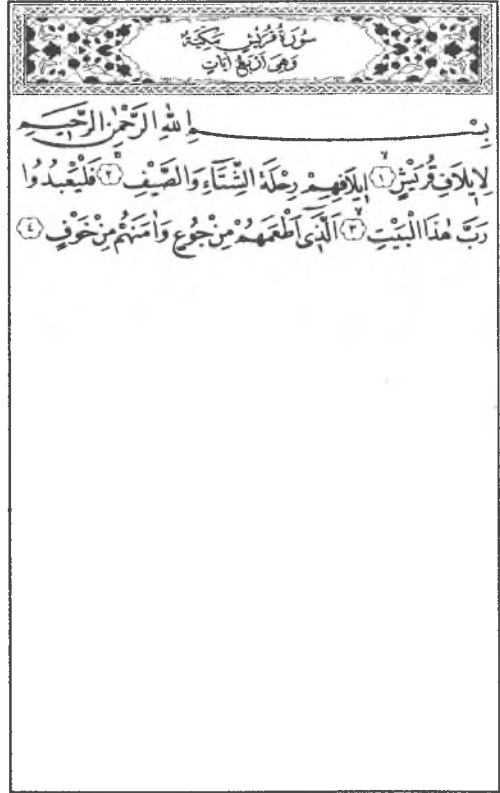 سُورَةُ قُرَيْشٍ مَكِّيَّةٌ
وَهِيَ اَرْبَعُ اٰيَاتٍ
بِسْمِ اللّٰهِ الرَّحْمٰنِ الرَّحِيمِ
لِاِيلَافِ قُرَيْشٍۙ ﴿١﴾ اٖيلَافِهِمْ رِحْلَةَ الشِّتَٓاءِ وَالصَّيْفِۚ ﴿٢﴾ فَلْيَعْبُدُوا
رَبَّ هٰذَا الْبَيْتِۙ ﴿٣﴾ اَلَّذٖٓي اَطْعَمَهُمْ مِنْ جُوعٍ وَاٰمَنَهُمْ مِنْ خَوْفٍ ﴿٤﴾